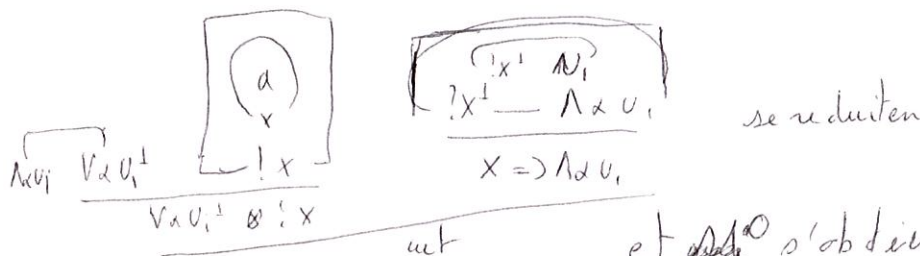 a
x
?X⊥ ΛU₁
?X⊥ — Λα U₁
se reduit en
ΛαU₁ VαU₁⊥ !x
X => ΛαU₁
VαU₁⊥ ⊗ !X
cut et s'obtie